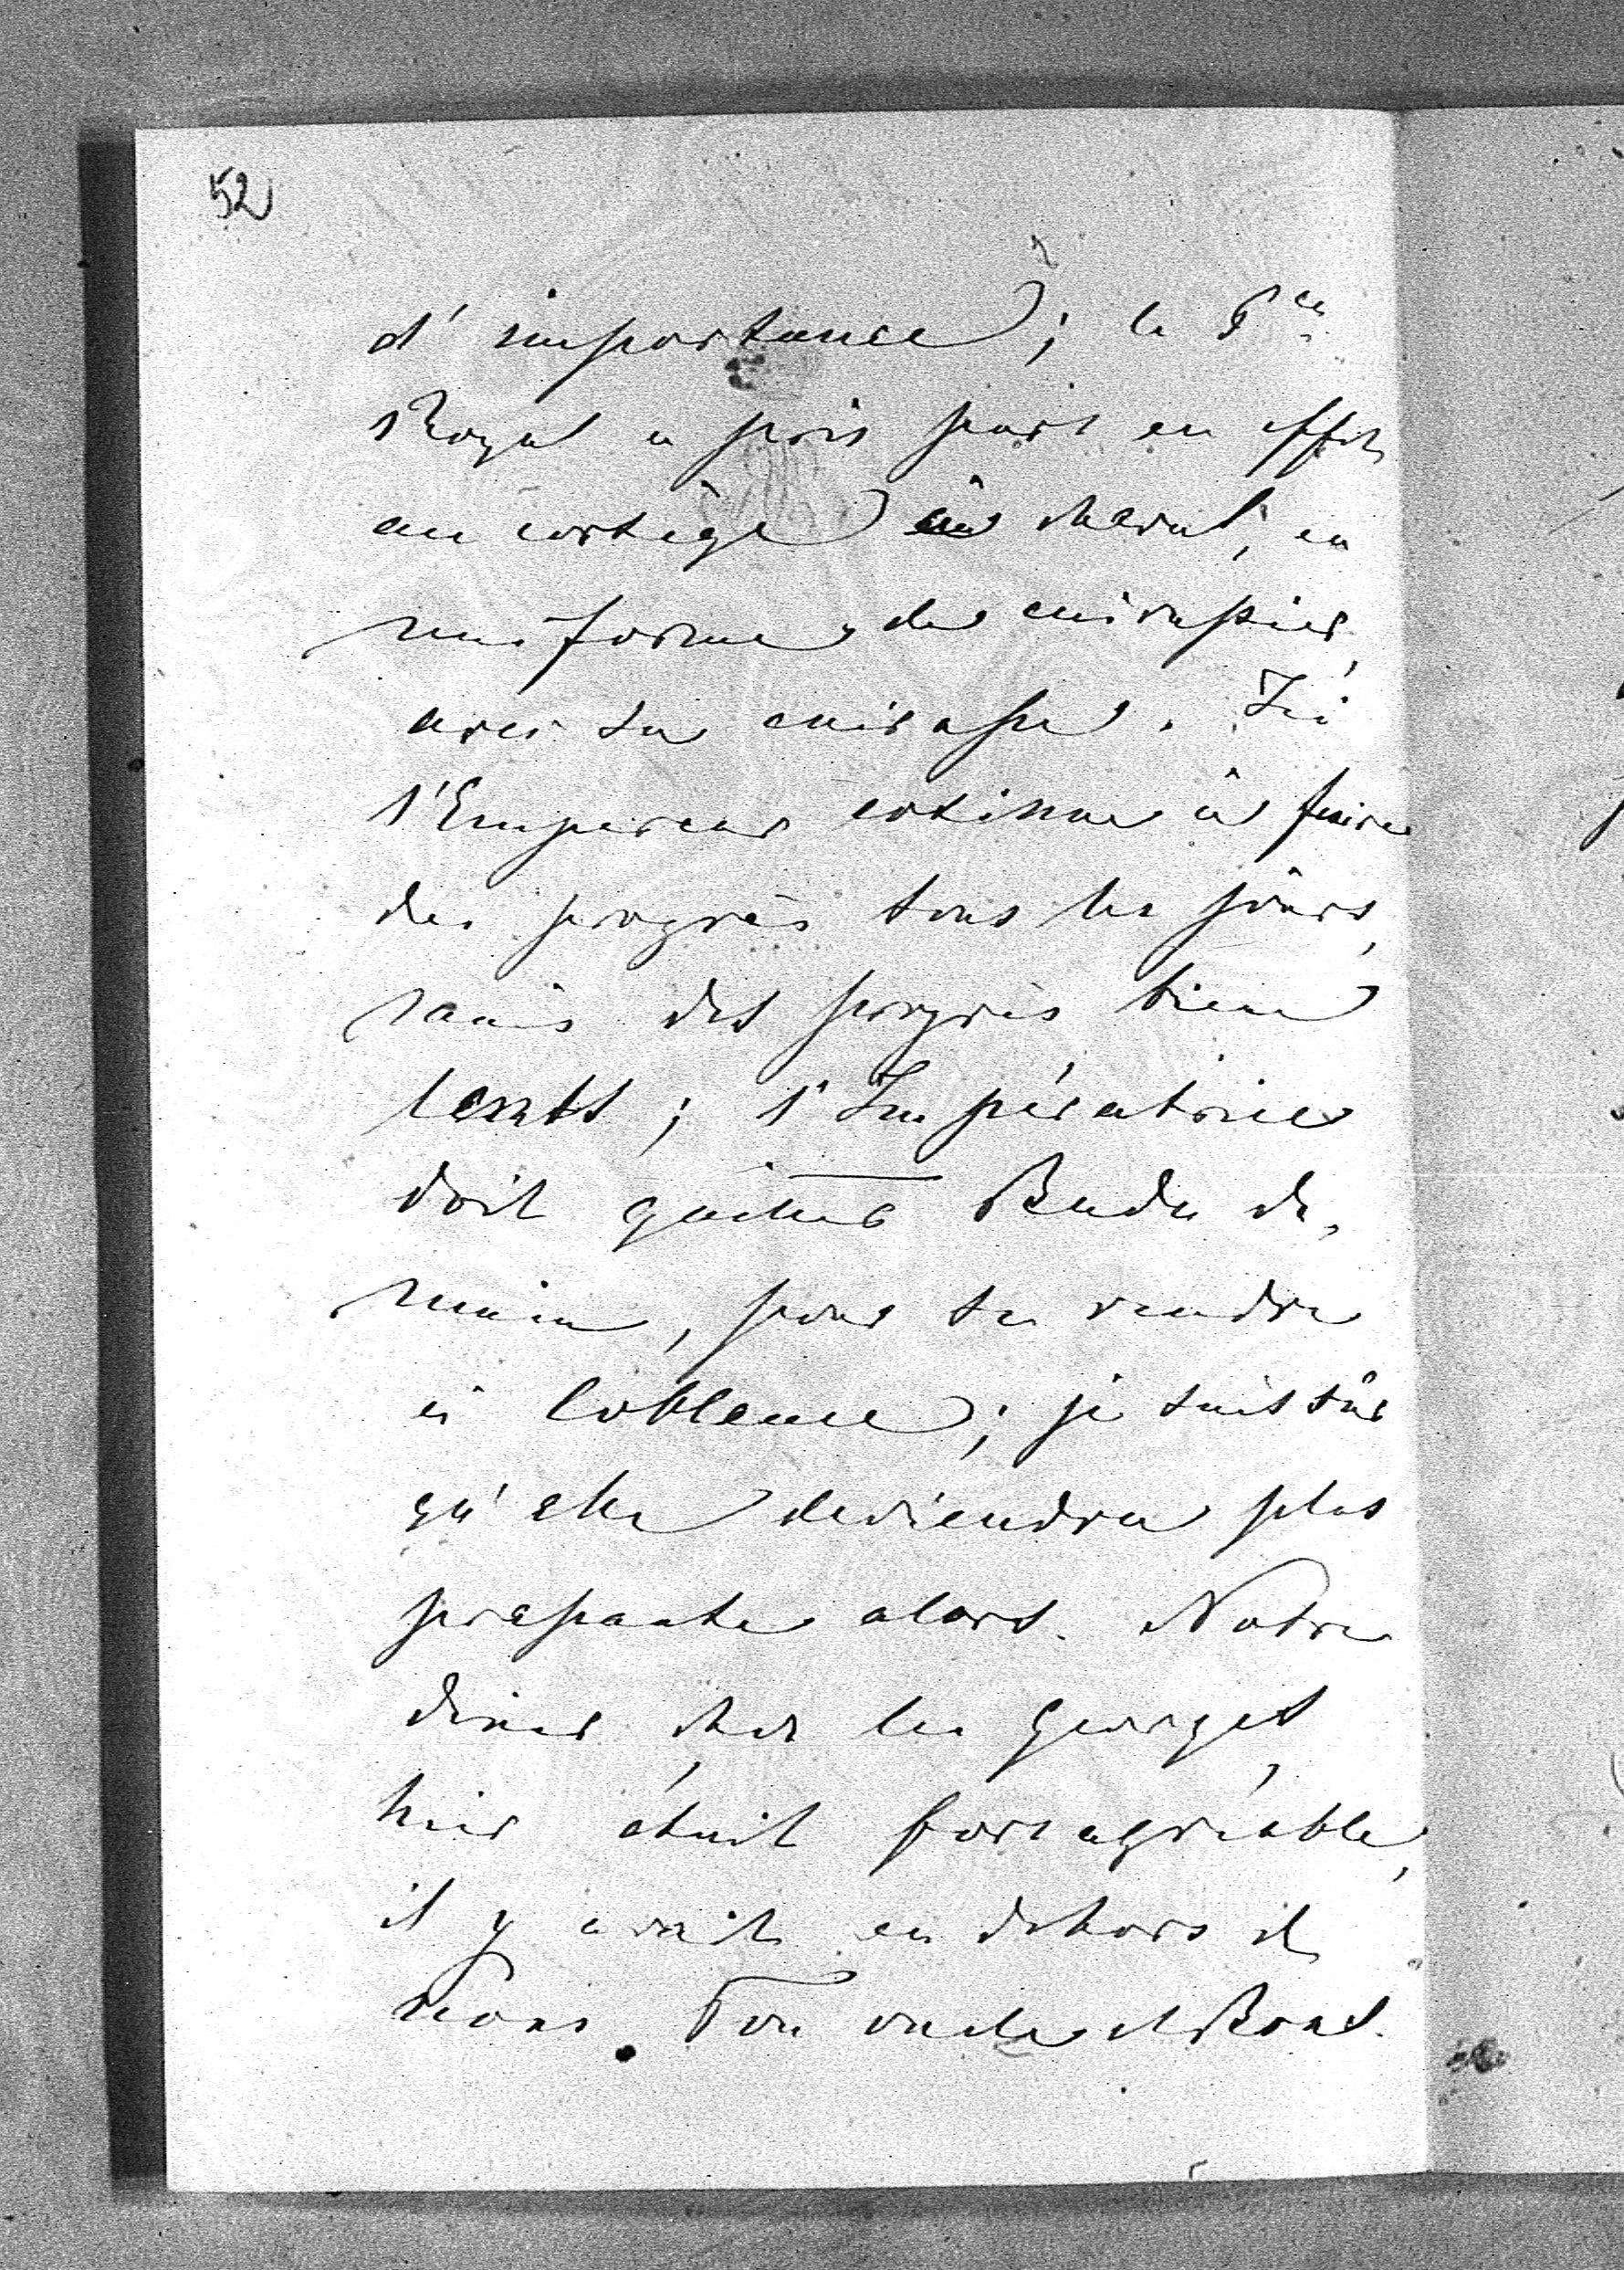 52
d'importance; le P^ce
Royal a pris part en effet
au cortège à cheval, en
uniforme de cuirassier,
avec sa cuirasse. Ici
l'Empereur cotinue à faire
des progrès tous les jours,
mais des progrès bien
lents; l'Impératrice
doit quitter Bade de-
main, pour se rendre
à Coblence; je suis sûr
qu'elle deviendra plus
pressante alors. Notre
diner chez les Georges,
hier était fort agréable,
il y avait en dehors de
nous Ton oncle et Bout